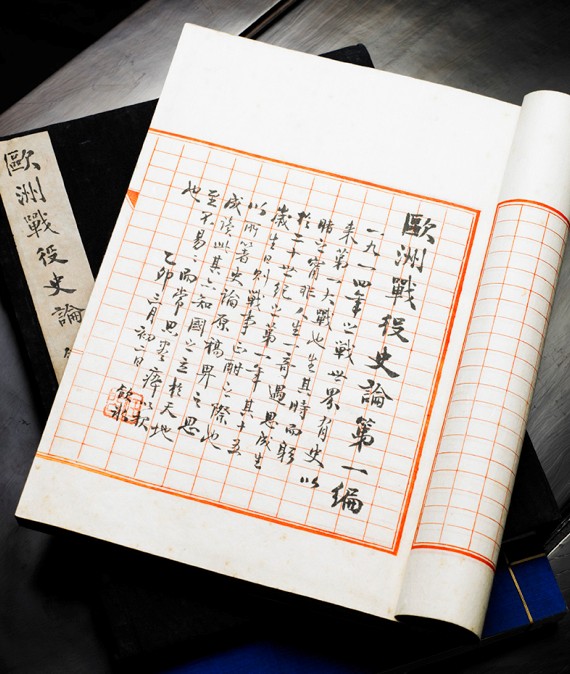 歐洲戰役史論第一編
一九一四年之戰世界有史以
來第一大戰也生其時而躬
睹之寧非人生一奇遇思成生
於二十世紀之第一年其十五
歲生日則戰事正酣之際也
以所著史論原稿界之思
成此其知國之立於天地
至不易而常思
也
乙卯三月初
飲冰
歐洲戰役史論